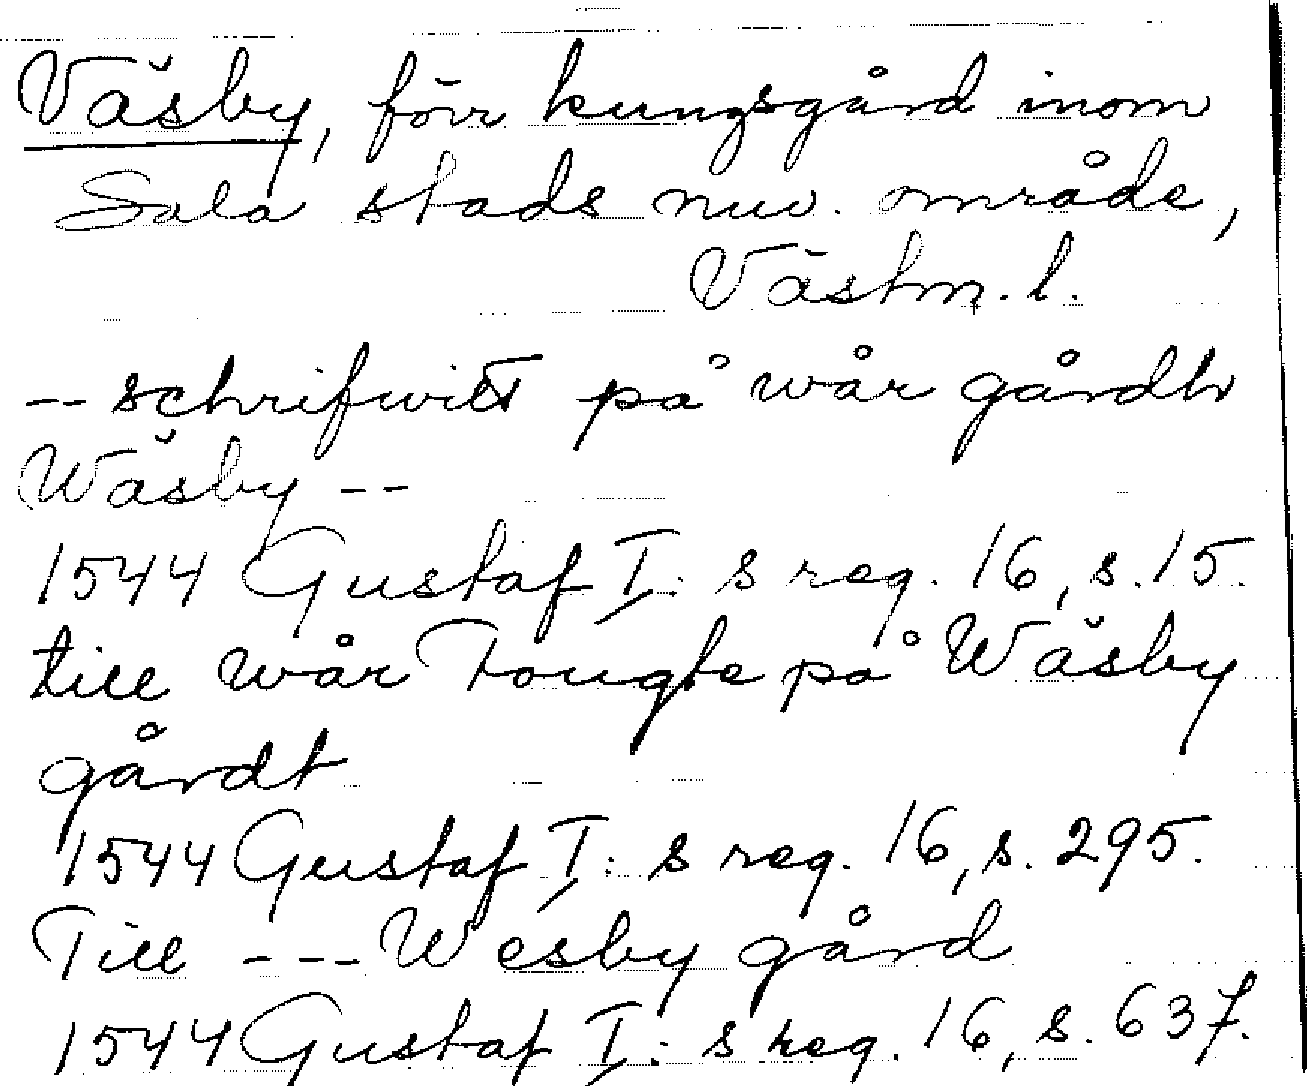 Väsby, förr kungsgård inom
Sala stads nuv. område,
Västm. l.
-- schrifwitt på wår gårdh
Wäsby --
1544 Gustaf I: s reg. 16, s. 15.
till wår Fougte på Wäsby
gårdt
1544 Gustaf I: s reg. 16, s. 295.
Till --- Wesby gård
1544 Gustaf I: s reg. 16, s. 637.